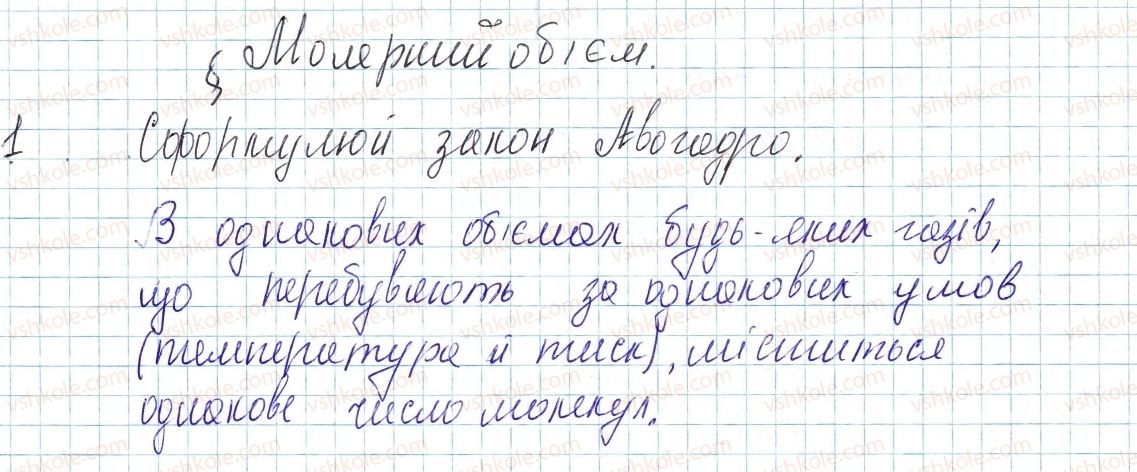 § Молярний об'єм.
1 Сформулюй закон Авогадро.
В однакових об'ємах будь-яких газів,
що перебувають за однакових умов
(температура й тиск), міститься
однакове число молекул.